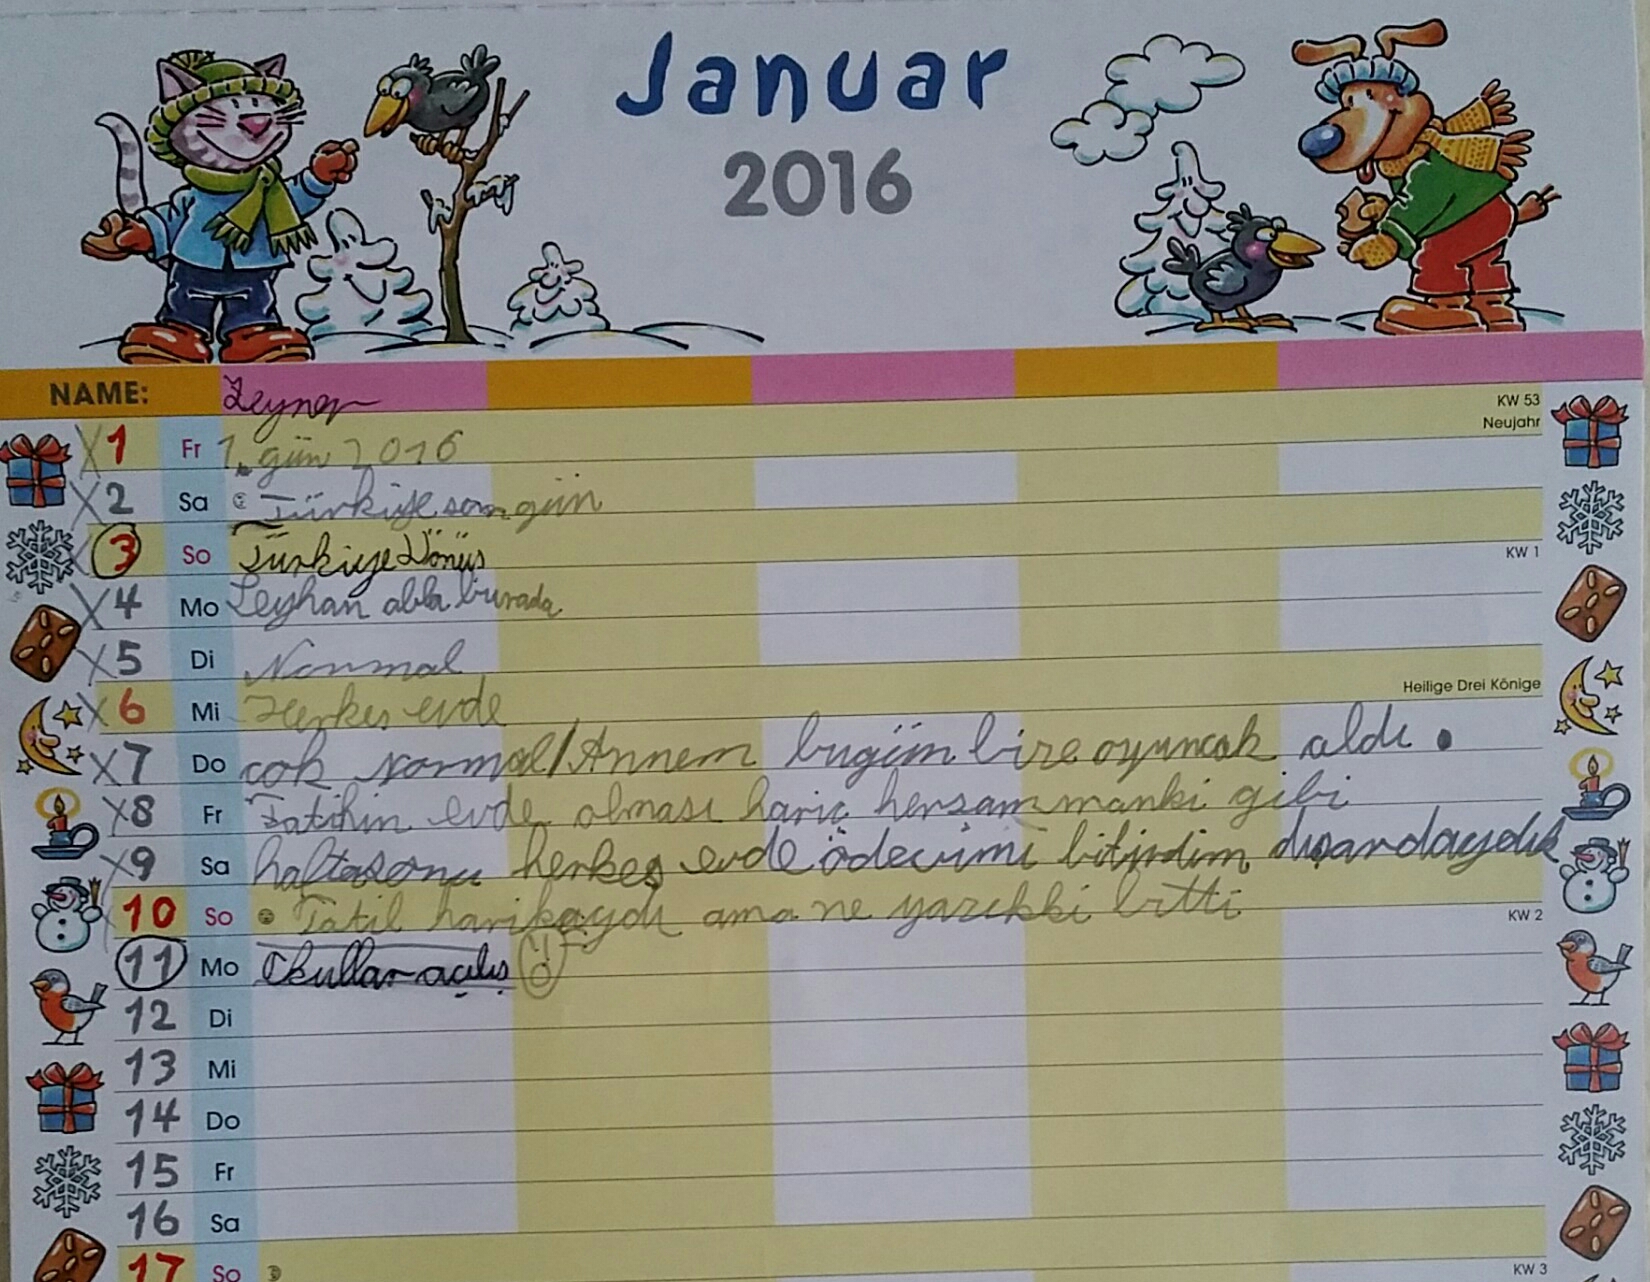 Januar
2016
NAME: Zeynep
KW 53
1 Fr 1. gün 2016 Neujahr
2 Sa Türkiye son gün
3 So Türkiye Dönüş KW 1
4 Mo Leyhan abla burada
5 Di Normal
6 Mi Herkes evde Heilige Drei Könige
7 Do cok normal/Annem bugün bize oyuncak aldı.
8 Fr Fatihin evde olması hariç herzammanki gibi
9 Sa haftasonu herkes evde ödevimi bitirdim dışardaydık
10 So Tatil harikaydı ama ne yazıkki bitti KW 2
11 Mo Okullar açılış
12 Di
13 Mi
14 Do
15 Fr
16 Sa
17 So KW 3